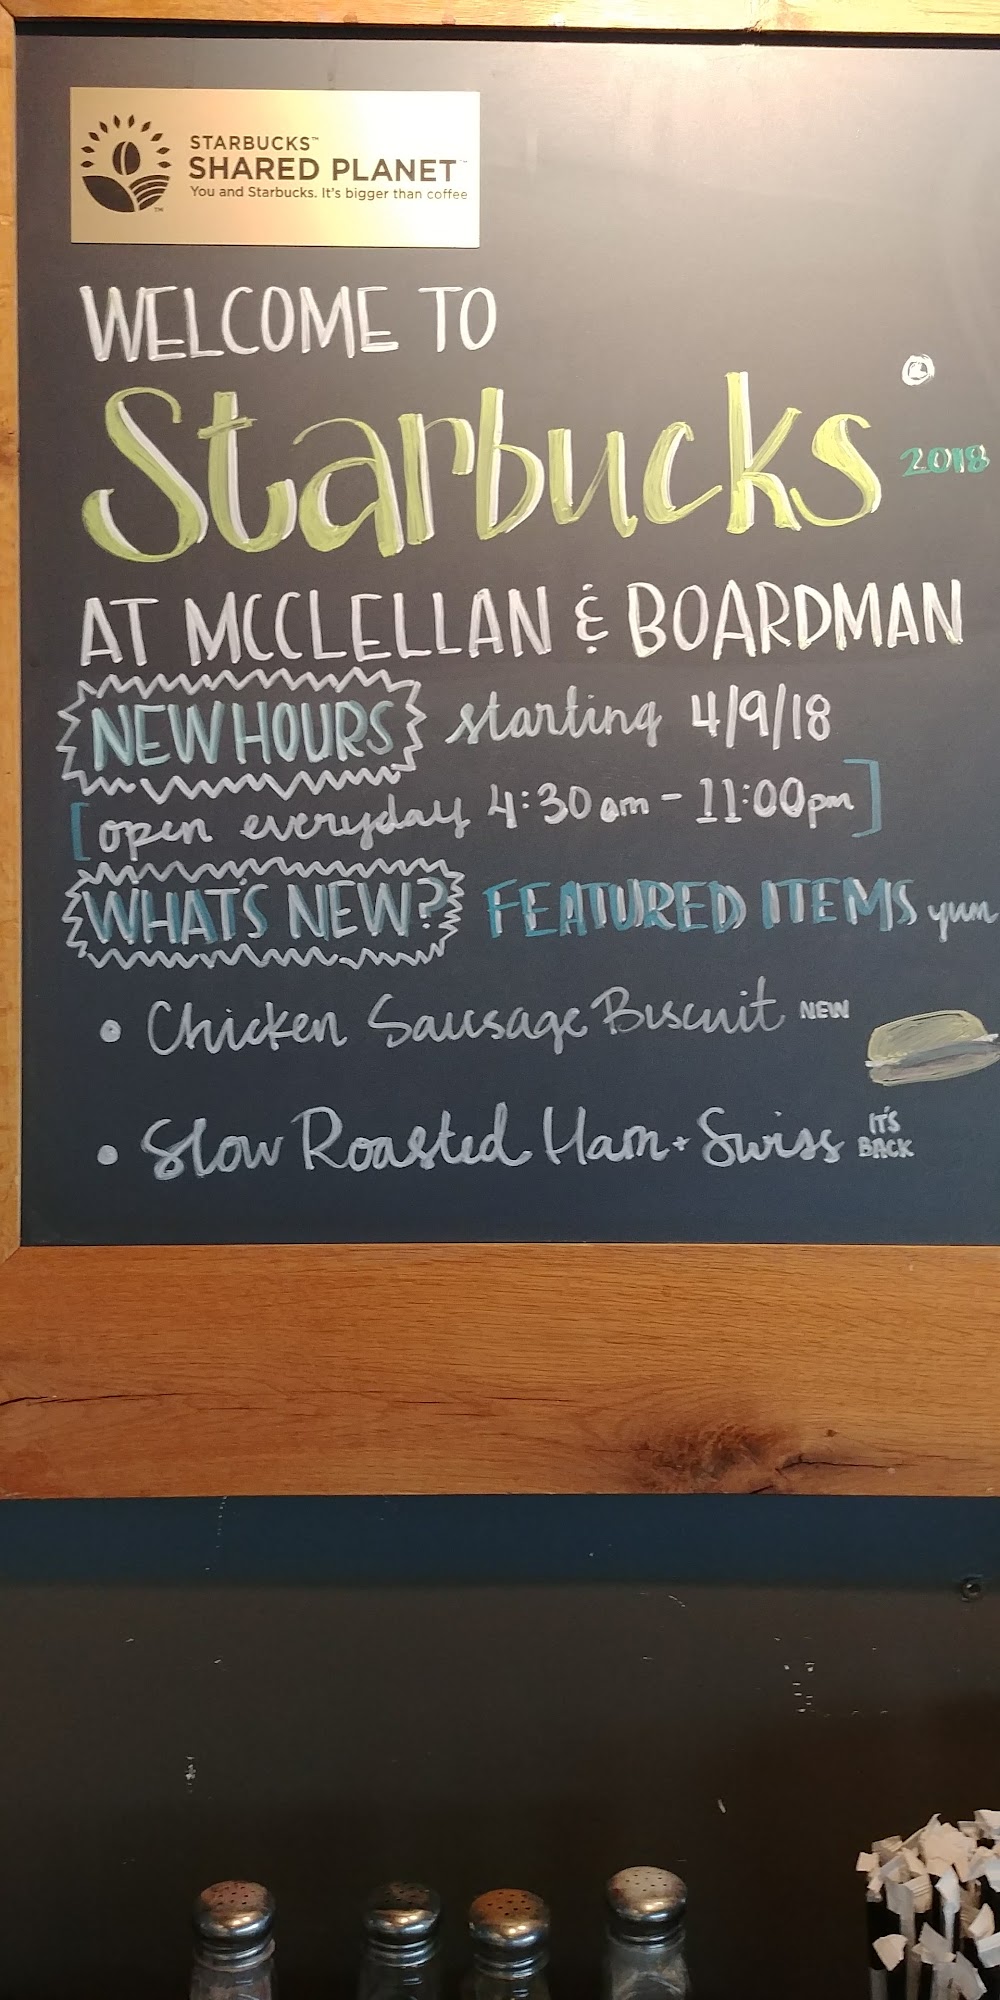 STARBUCKS™
SHARED PLANET™
You and Starbucks. It's bigger than coffee
WELCOME TO
Starbucks 2018
AT MCCLELLAN & BOARDMAN
NEW HOURS starting 4/9/18
[open everyday 4:30am - 11:00pm]
WHAT'S NEW? FEATURED ITEMS yum
• Chicken Sausage Biscuit NEW
• Slow Roasted Ham + Swiss IT'S BACK